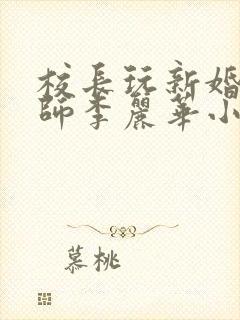 校長玩新婚
師李麗華小
慕桃